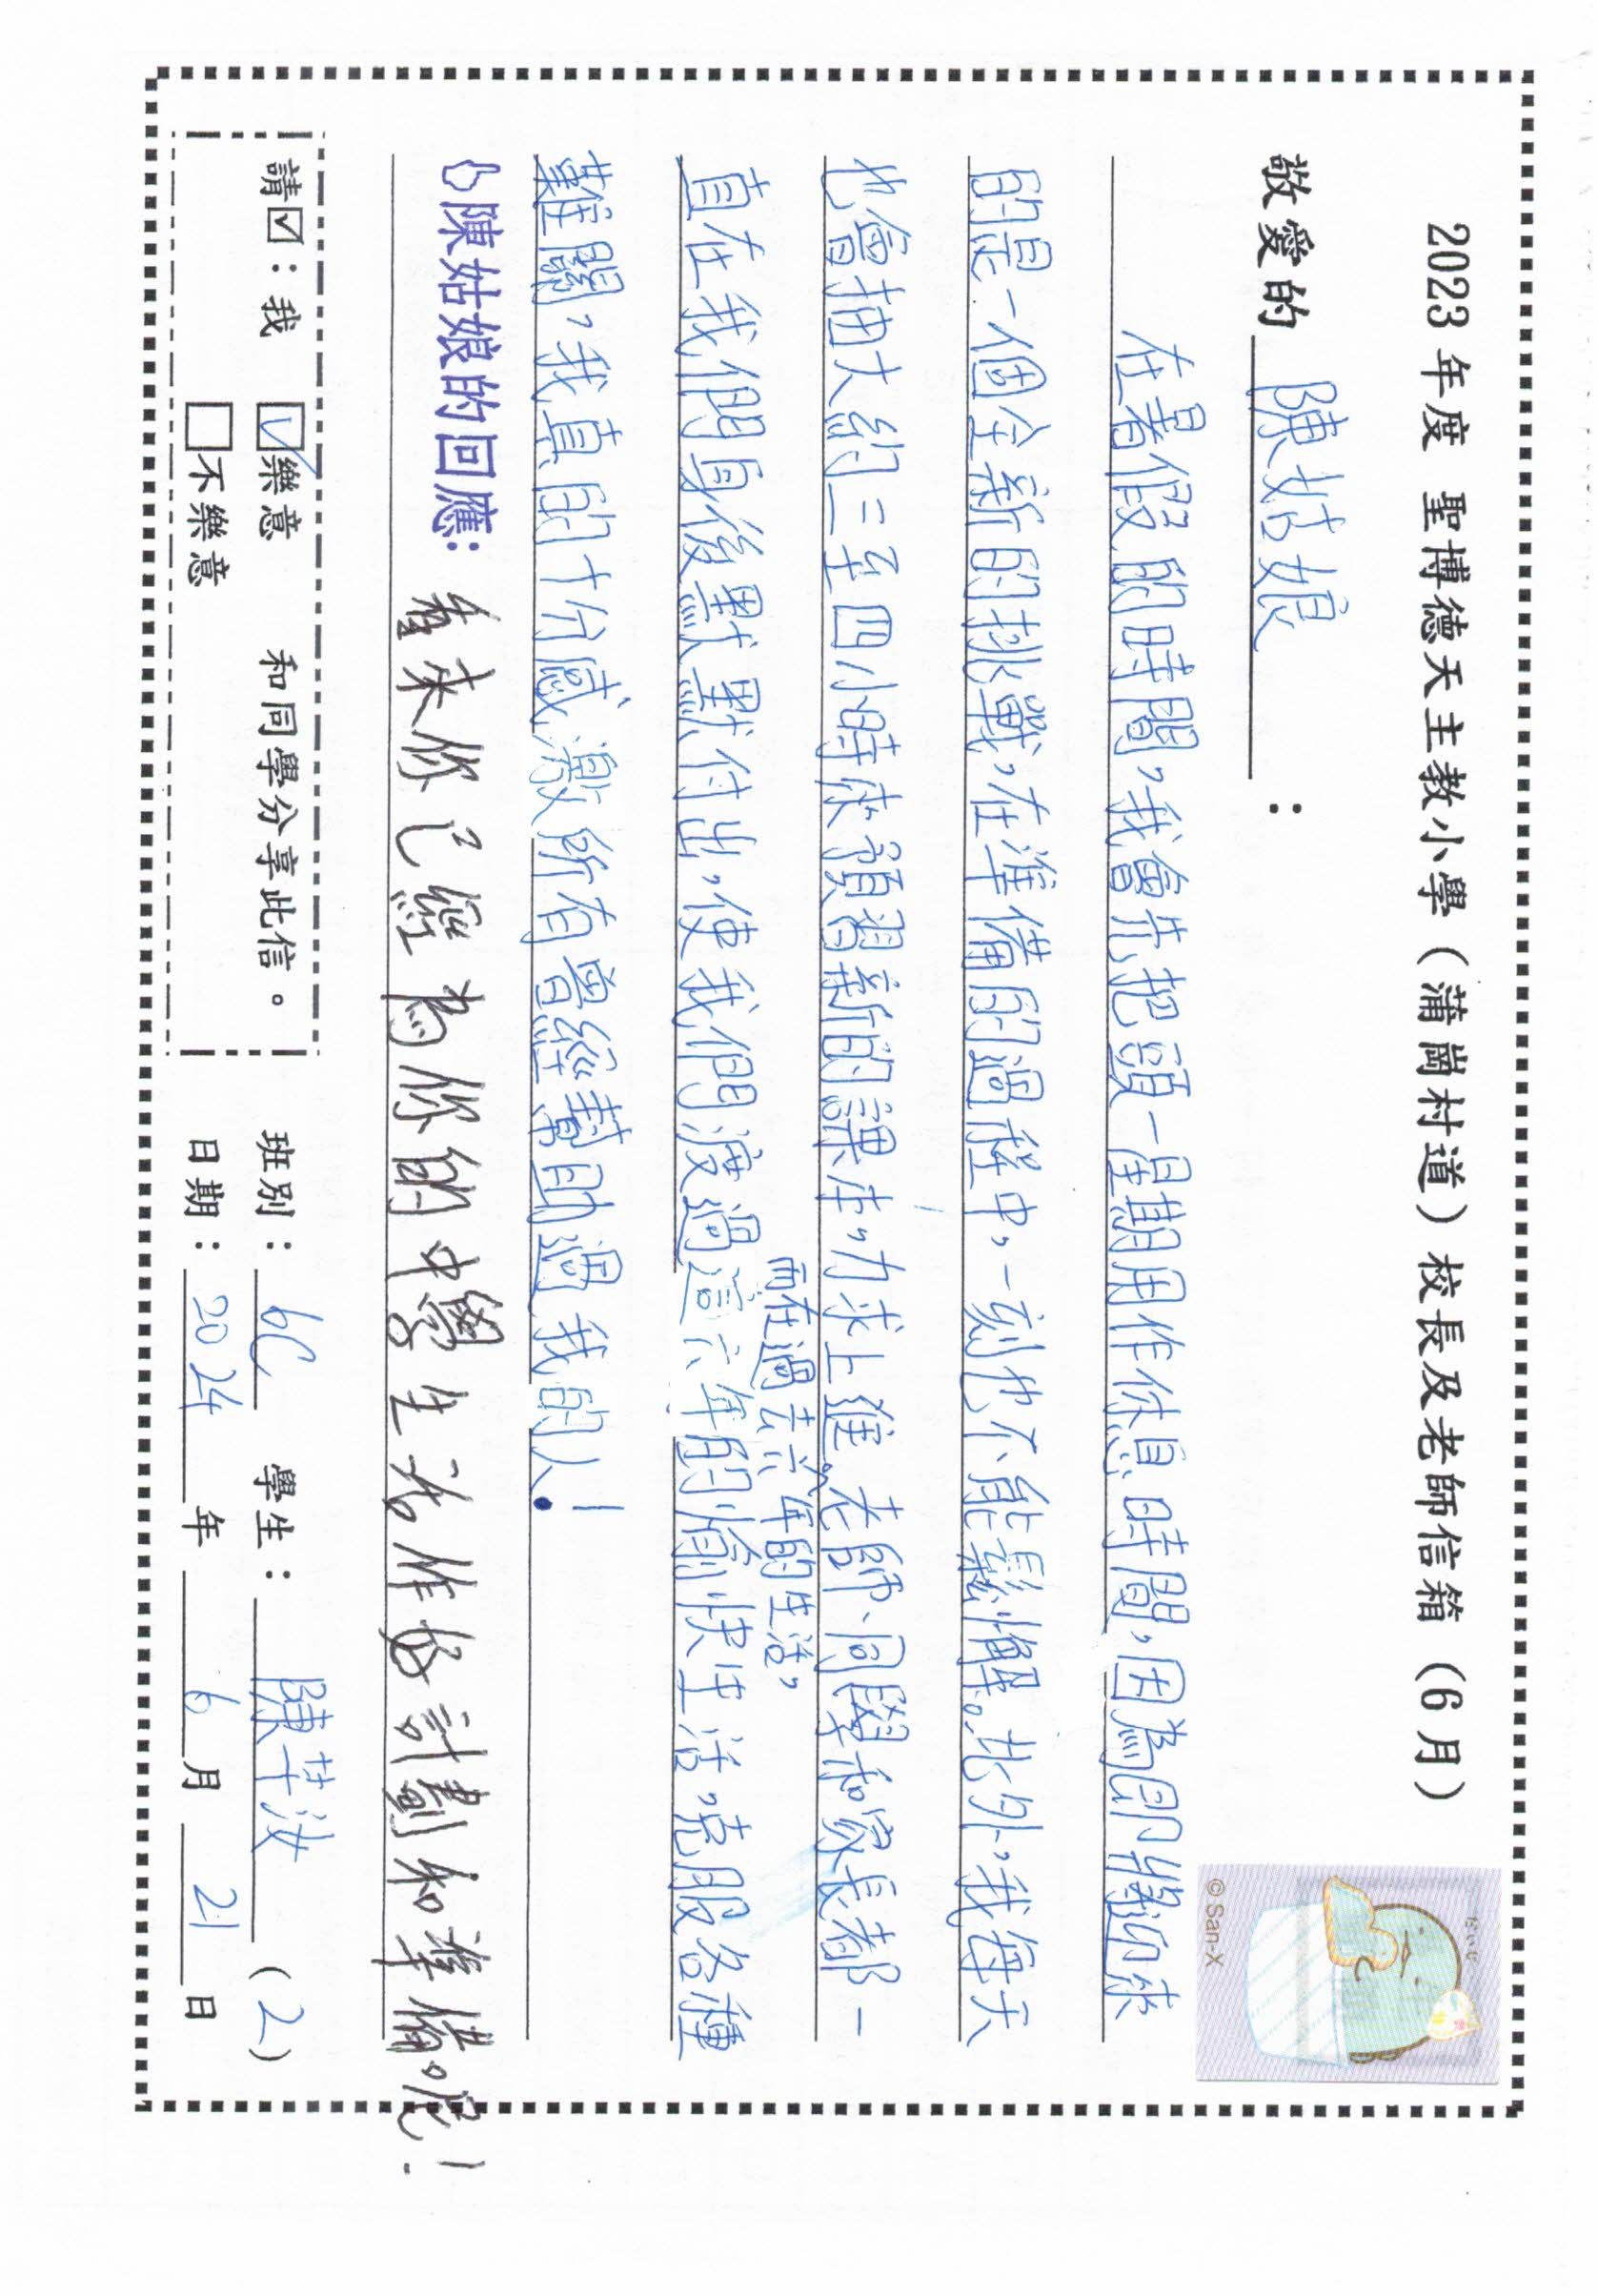 2023 年度 聖博德天主教小學（蒲崗村道）校長及老師信箱（6 月）
敬愛的 陳姑娘 ：
在暑假的時間，我會先把頭一星期用作休息時間，因為即將迎來
的是一個全新的挑戰，在準備的過程中，一刻也不能鬆懈。此外，我每天
也會抽大約三至四小時來預習新的課程，力求上進。老師、同學和家長都一
而在過去六年的生活，
直在我們身後默默付出，使我們渡過這六年的愉快生活，克服各種
難關，我真的十分感激所有曾經幫助過我的人！
陳姑娘的回應：看來你已經為你的中學生活作好計劃和準備呢！
請☑：我 ☑樂意 和同學分享此信。 班別：6C 學生：陳芊汝 (2)
□不樂意 日期：2024 年 6 月 21 日
だいじ
© San-X